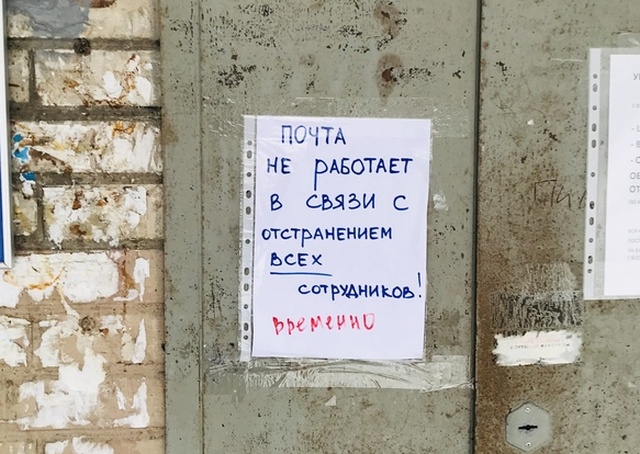 ПОЧТА
НЕ РАБОТАЕТ
В СВЯЗИ С
ОТСТРАНЕНИЕМ
ВСЕХ
СОТРУДНИКОВ!
временно